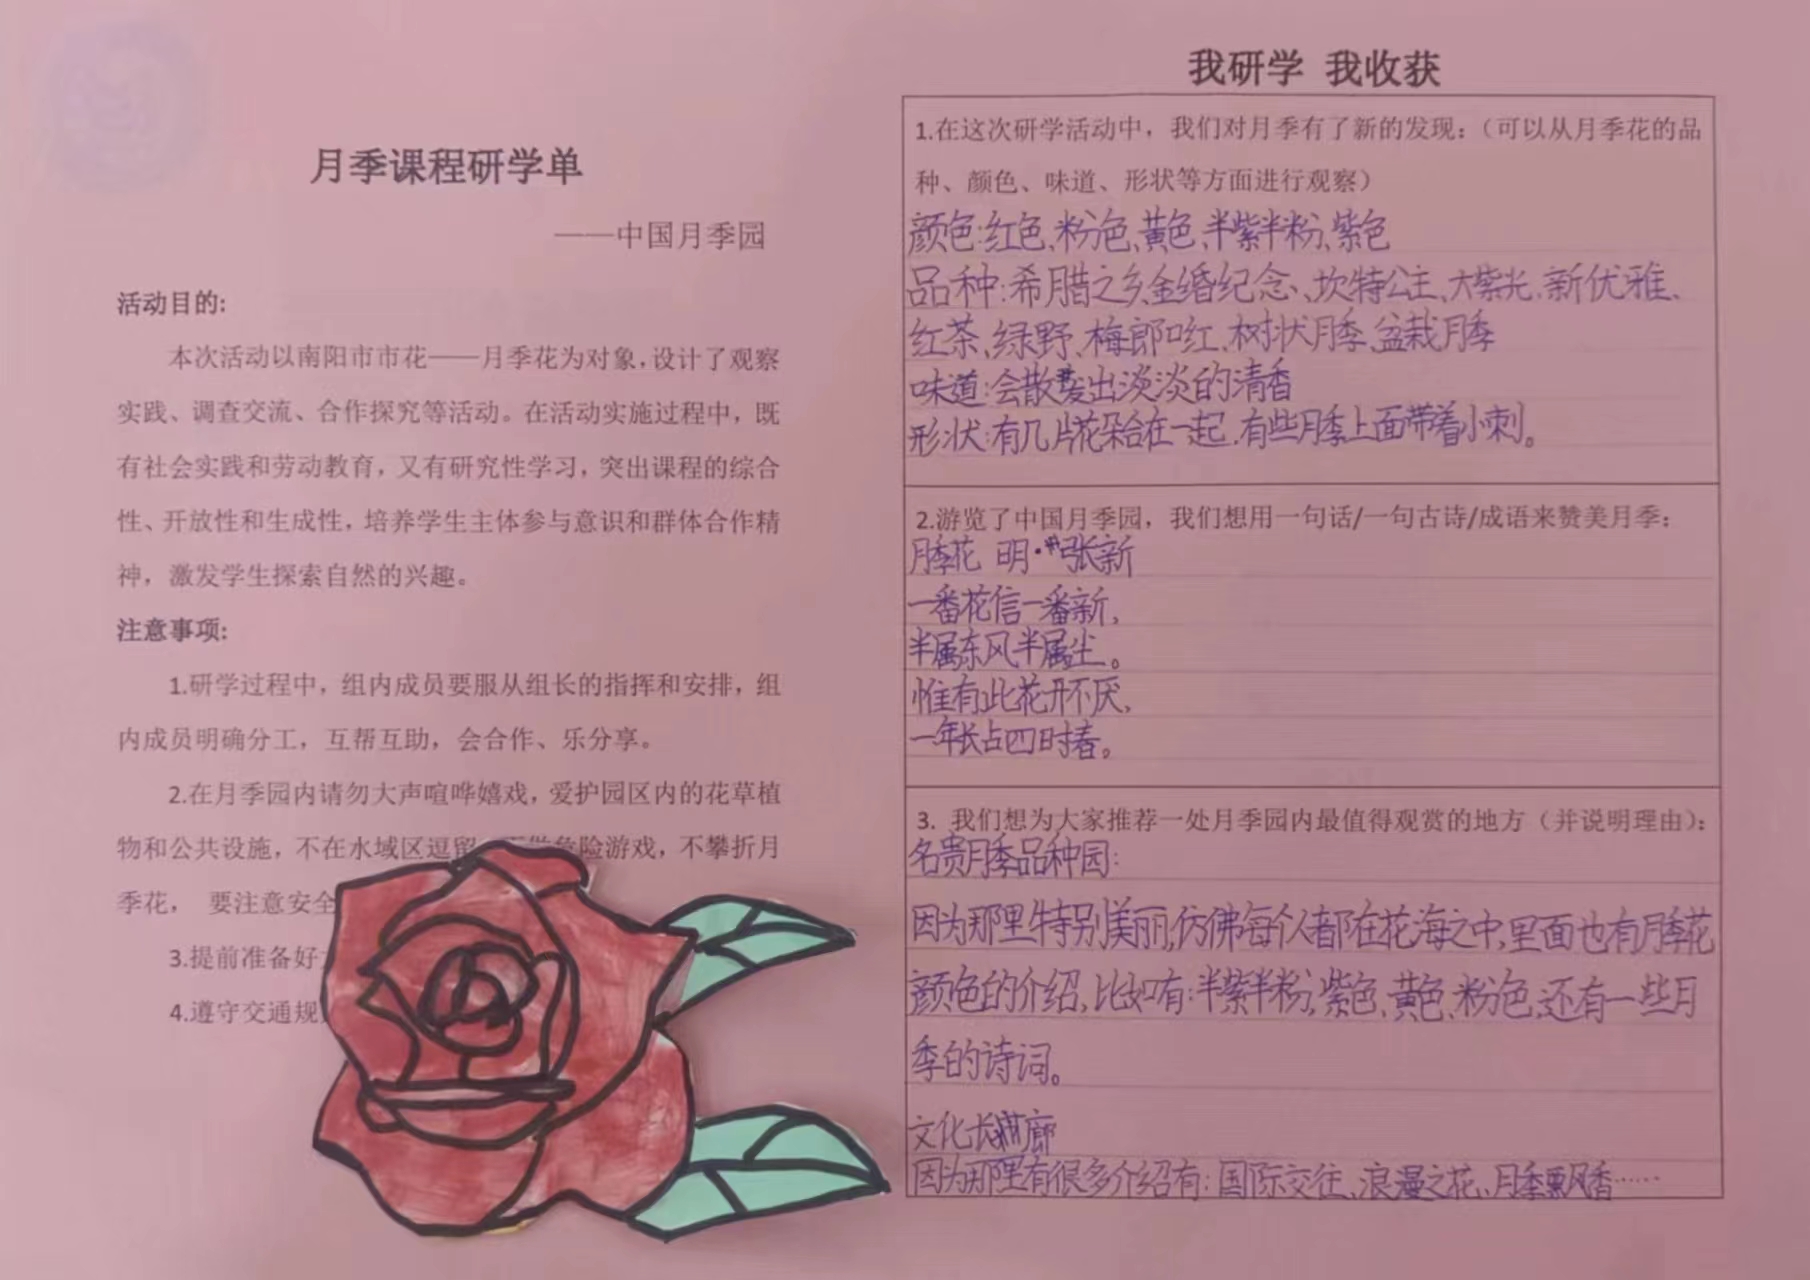 月季课程研学单
——中国月季园
活动目的:
本次活动以南阳市市花——月季花为对象,设计了观察
实践、调查交流、合作探究等活动。在活动实施过程中,既
有社会实践和劳动教育,又有研究性学习,突出课程的综合
性、开放性和生成性,培养学生主体参与意识和群体合作精
神,激发学生探索自然的兴趣。
注意事项:
1.研学过程中,组内成员要服从组长的指挥和安排,组
内成员明确分工,互帮互助,会合作、乐分享。
2.在月季园内请勿大声喧哗嬉戏,爱护园区内的花草植
物和公共设施,不在水域区逗留 危险游戏,不攀折月
季花, 要注意安全
3.提前准备好
4.遵守交通规
我研学 我收获
1.在这次研学活动中,我们对月季有了新的发现:(可以从月季花的品
种、颜色、味道、形状等方面进行观察)
颜色:红色、粉色、黄色、半紫半粉、紫色
品种:希腊之乡、金婚纪念、坎特公主、大紫光、新优雅、
红茶、绿野、梅郎口红、树状月季、盆栽月季
味道:会散发出淡淡的清香
形状:有几片花朵合在一起,有些月季上面带着小刺。
2.游览了中国月季园,我们想用一句话/一句古诗/成语来赞美月季:
月季花 明·张新
一番花信一番新,
半属东风半属尘。
惟有此花开不厌,
一年长占四时春。
3. 我们想为大家推荐一处月季园内最值得观赏的地方(并说明理由):
名贵月季品种园:
因为那里特别美丽,仿佛每个人都在花海之中,里面也有月季花
颜色的介绍,比如有:半紫半粉,紫色、黄色、粉色,还有一些月
季的诗词。
文化长廊
因为那里有很多介绍有:国际交往、浪漫之花、月季飘香……